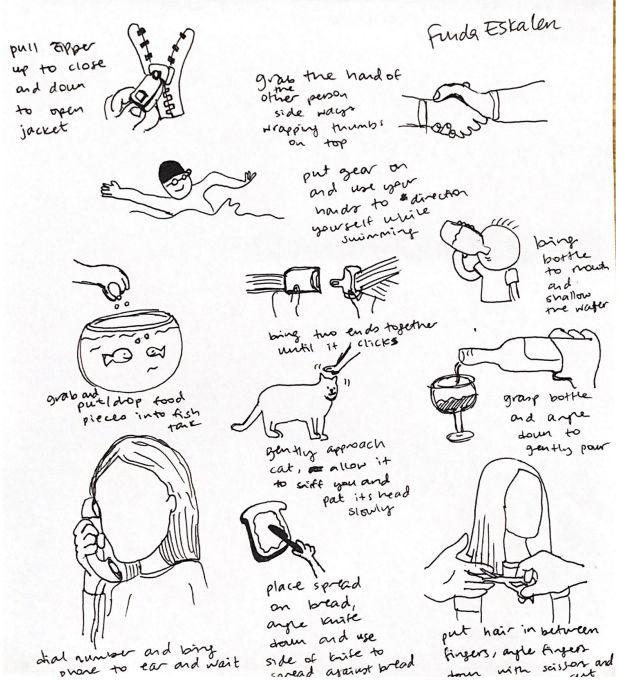 Funda Eskalen
pull zipper
up to close
and down
to open
jacket
grab the hand of
the
other person
side ways
wrapping thumbs
on top
put gear on
and use your
hands to direction
yourself while
swimming
bring
bottle
to mouth
and
shallow
the water
bring two ends together
until it clicks
grab ad
put/drop food
pieces into fish
tank
grasp bottle
and angle
down to
gently pour
gently approach
cat, allow it
to sniff you and
pat its head
slowly
dial number and bring
phone to ear and wait
place spread
on bread,
angle knife
down and use
side of knife to
spread against bread
put hair in between
fingers, angle fingers
down with scissor and
cut